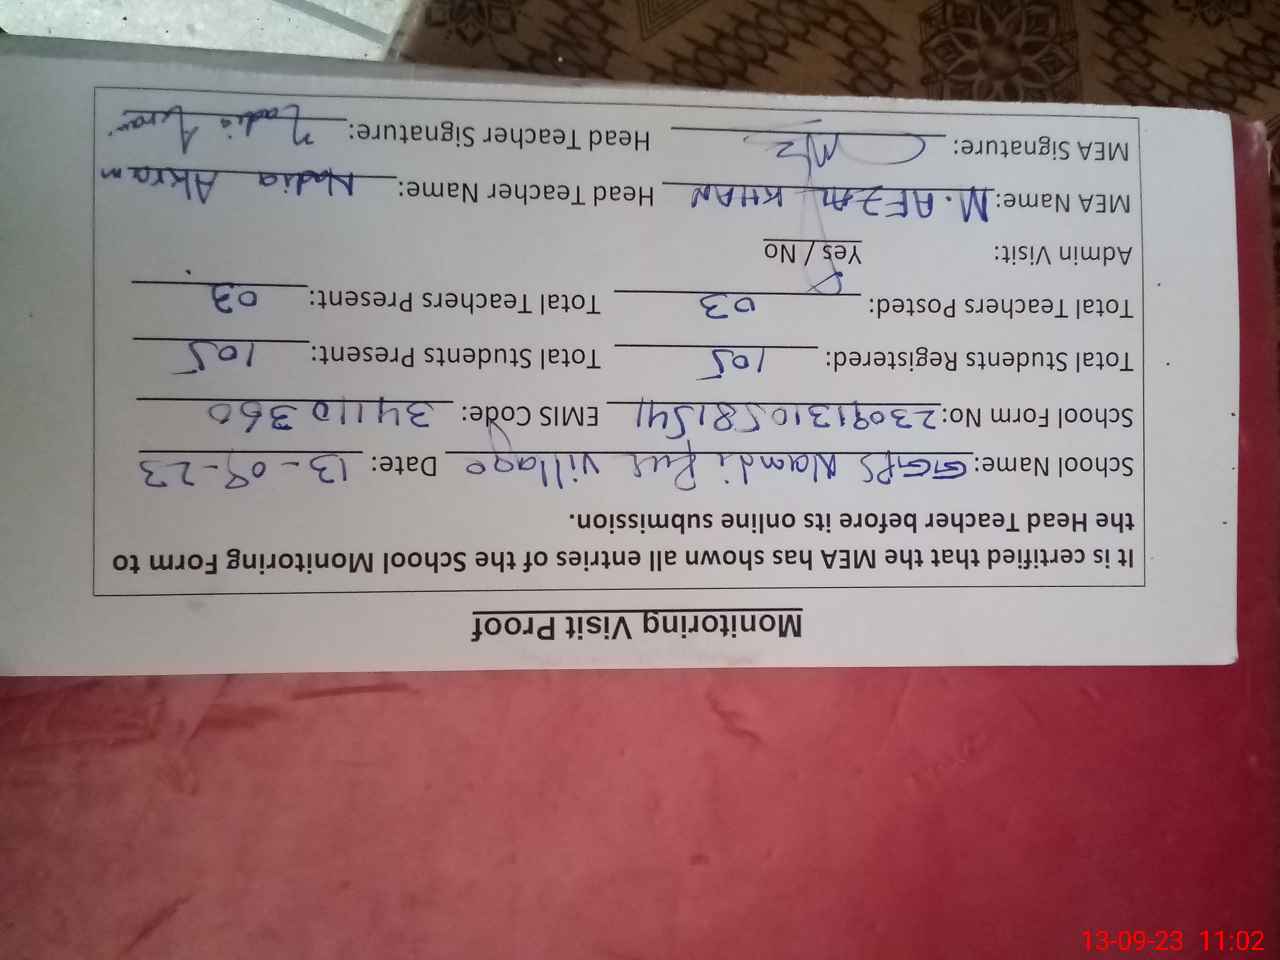 Monitoring Visit Proof
It is certified that the MEA has shown all entries of the School Monitoring Form to
the Head Teacher before its online submission.
School Name: GGPS Nandi Pur village Date: 13-09-23
School Form No: 23091310581541 EMIS Code: 34110360
Total Students Registered: 105 Total Students Present: 105
Total Teachers Posted: 03 Total Teachers Present: 03
Admin Visit: Yes / No
MEA Name: M. AFZAL KHAN Head Teacher Name: Nadia Akram
MEA Signature: Head Teacher Signature: Nadia Akram
13-09-23 11:02